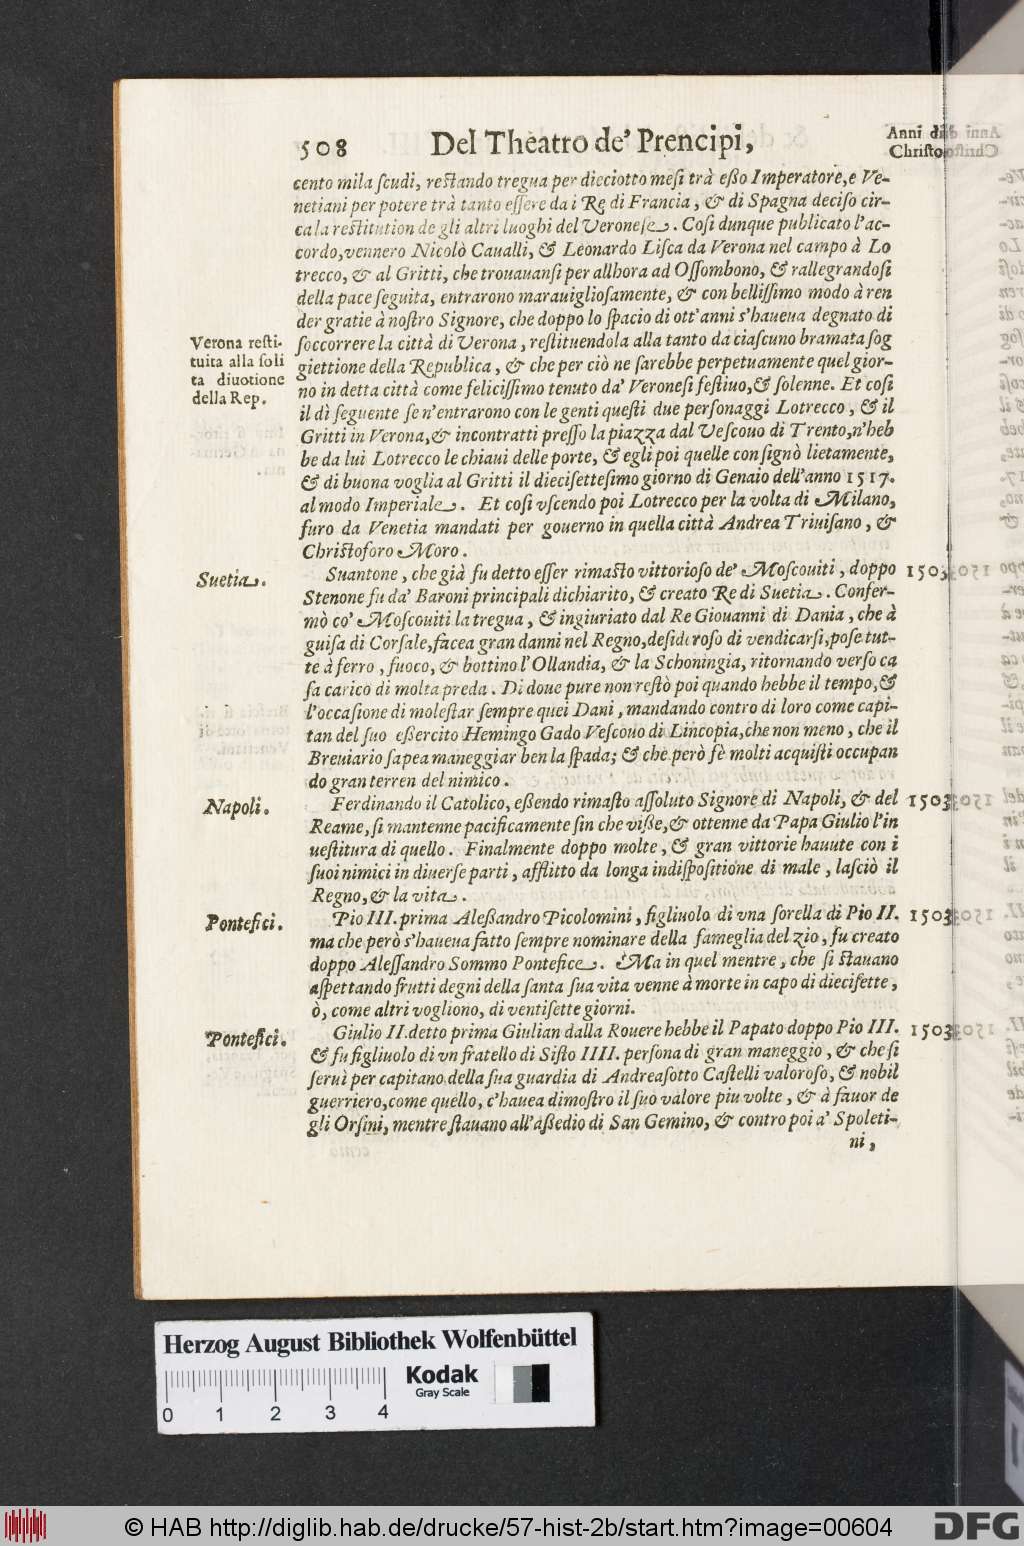 508 Del Theatro de' Prencipi, Anni di
Christo
cento mila ſcudi, reſtando tregua per dieciotto meſi trà eßo Imperatore, e Ve-
netiani per potere trà tanto eſſere da i Rè di Francia, & di Spagna deciſo cir-
ca la reſtitution de gli altri luoghi del Veroneſe. Coſi dunque publicato l'ac-
cordo, vennero Nicolò Caualli, & Leonardo Liſca da Verona nel campo à Lo
trecco, & al Gritti, che trouauanſi per allhora ad Oſſombono, & rallegrandoſi
della pace ſeguita, entrarono marauiglioſamente, & con belliſſimo modo à ren
der gratie à noſtro Signore, che doppo lo ſpacio di ott'anni s'haueua degnato di
Verona reſti-
tuita alla ſoli
ta diuotione
della Rep.
ſoccorrere la città di Verona, reſtituendola alla tanto da ciaſcuno bramata ſog
giettione della Republica, & che per ciò ne ſarebbe perpetuamente quel gior-
no in detta città come feliciſſimo tenuto da' Veroneſi feſtiuo, & ſolenne. Et coſi
il dì ſeguente ſe n'entrarono con le genti queſti due perſonaggi Lotrecco, & il
Gritti in Verona, & incontratti preſſo la piazza dal Veſcouo di Trento, n'heb
be da lui Lotrecco le chiaui delle porte, & egli poi quelle conſignò lietamente,
& di buona voglia al Gritti il dieciſetteſimo giorno di Genaio dell'anno 1517.
al modo Imperiale. Et coſi vſcendo poi Lotrecco per la volta di Milano,
furo da Venetia mandati per gouerno in quella città Andrea Triuiſano, &
Chriſtoforo Moro.
Suetia. Suantone, che già fu detto eſſer rimaſto vittorioſo de' Moſcouiti, doppo 1503
Stenone fu da' Baroni principali dichiarito, & creato Re di Suetia. Confer-
mò co' Moſcouiti la tregua, & ingiuriato dal Re Giouanni di Dania, che à
guiſa di Corſale, facea gran danni nel Regno, deſideroſo di vendicarſi, poſe tut-
te à ferro, fuoco, & bottino l'Ollandia, & la Schoningia, ritornando verſo ca
ſa carico di molta preda. Di doue pure non reſtò poi quando hebbe il tempo, &
l'occaſione di moleſtar ſempre quei Dani, mandando contro di loro come capi-
tan del ſuo eßercito Hemingo Gado Veſcouo di Lincopia, che non meno, che il
Breuiario ſapea maneggiar ben la ſpada; & che però fè molti acquiſti occupan
do gran terren del nimico.
Napoli. Ferdinando il Catolico, eßendo rimaſto aſſoluto Signore di Napoli, & del 1503
Reame, ſi mantenne pacificamente ſin che viße, & ottenne da Papa Giulio l'in
ueſtitura di quello. Finalmente doppo molte, & gran vittorie hauute con i
ſuoi nimici in diuerſe parti, afflitto da longa indiſpoſitione di male, laſciò il
Regno, & la vita.
Pontefici. Pio III. prima Aleßandro Picolomini, figliuolo di vna ſorella di Pio II. 1503
ma che però s'haueua fatto ſempre nominare della fameglia del zio, fu creato
doppo Aleſſandro Sommo Pontefice. Ma in quel mentre, che ſi ſtauano
aſpettando frutti degni della ſanta ſua vita venne à morte in capo di dieciſette,
ò, come altri vogliono, di ventiſette giorni.
Pontefici. Giulio II. detto prima Giulian dalla Rouere hebbe il Papato doppo Pio III. 1503
& fu figliuolo di vn fratello di Siſto IIII. perſona di gran maneggio, & che ſi
ſeruì per capitano della ſua guardia di Andreaſotto Caſtelli valoroſo, & nobil
guerriero, come quello, c'hauea dimoſtro il ſuo valore piu volte, & à fauor de
gli Orſini, mentre ſtauano all'aßedio di San Gemino, & contro poi a' Spoleti-
ni,
Herzog August Bibliothek Wolfenbüttel
Kodak
Gray Scale
0 1 2 3 4
© HAB http://diglib.hab.de/drucke/57-hist-2b/start.htm?image=00604 DFG